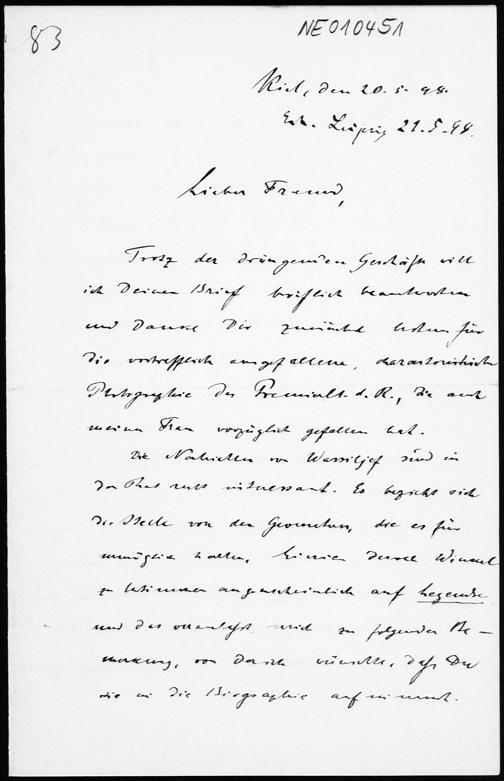 83
NE010451
Kiel, den 20.5.98.
Erh. Leipzig 21.5.98.
Lieber Freund,
Trotz der drängenden Geschäfte will
ich Deinen Brief brieflich beantworten
und danke Dir zunächst bestens für
die vortrefflich ausgefallene, charakteristische
Photographie des Premierlt. d. R., die auch
meiner Frau vorzüglich gefallen hat.
Die Nachrichten von Wassiljef sind in
der That recht interessant. Es bezieht sich
die Stelle von den Geometern, die es für
unmöglich halten, Linien durch Winkel
zu bestimmen augenscheinlich auf Legendre
und das veranlaßt mich zu folgender Be-
merkung, von der ich wünschte, daß Du
sie in die Biographie aufnimmst.